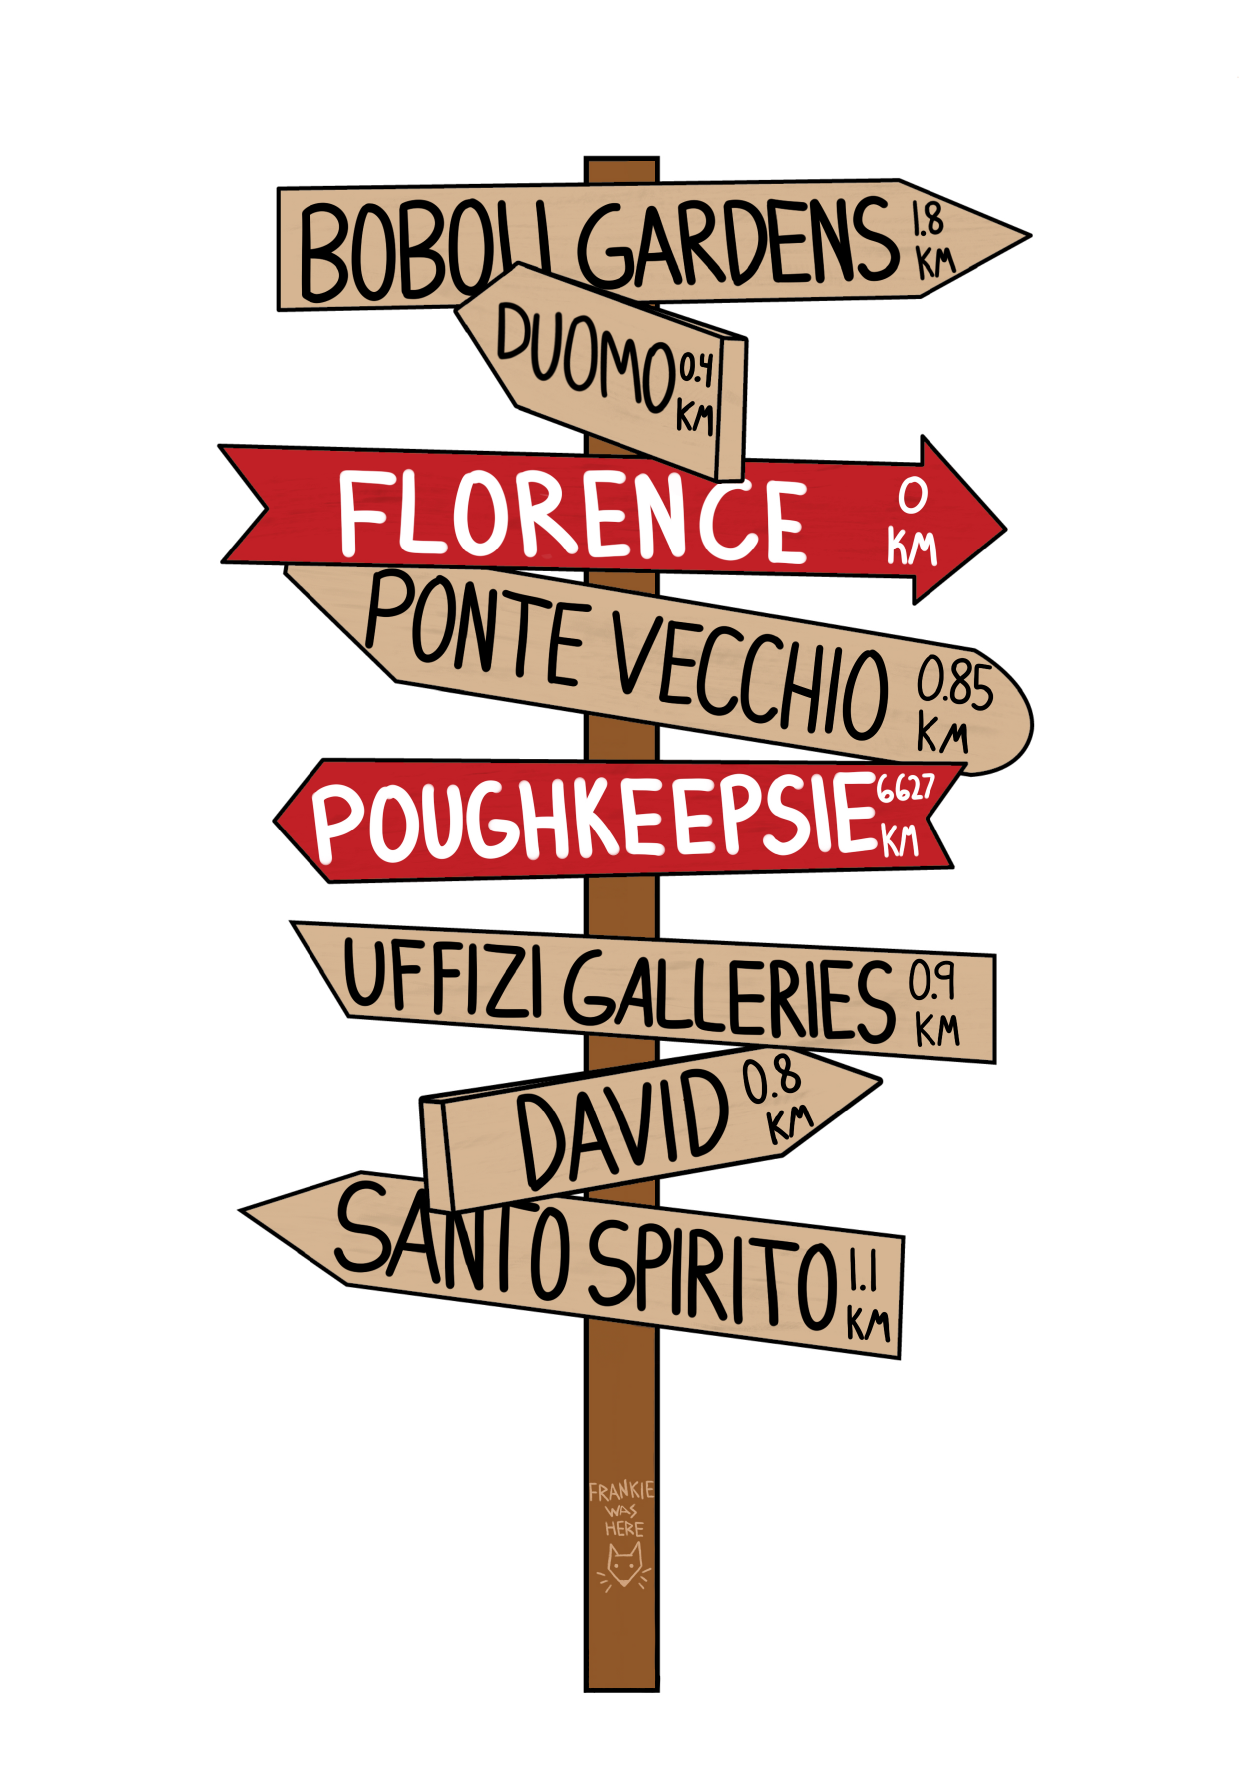 BOBOLI GARDENS 1.8 KM
DUOMO 0.4 KM
FLORENCE 0 KM
PONTE VECCHIO 0.85 KM
POUGHKEEPSIE 6627 KM
UFFIZI GALLERIES 0.9 KM
DAVID 0.8 KM
SANTO SPIRITO 1.1 KM
FRANKIE
WAS
HERE